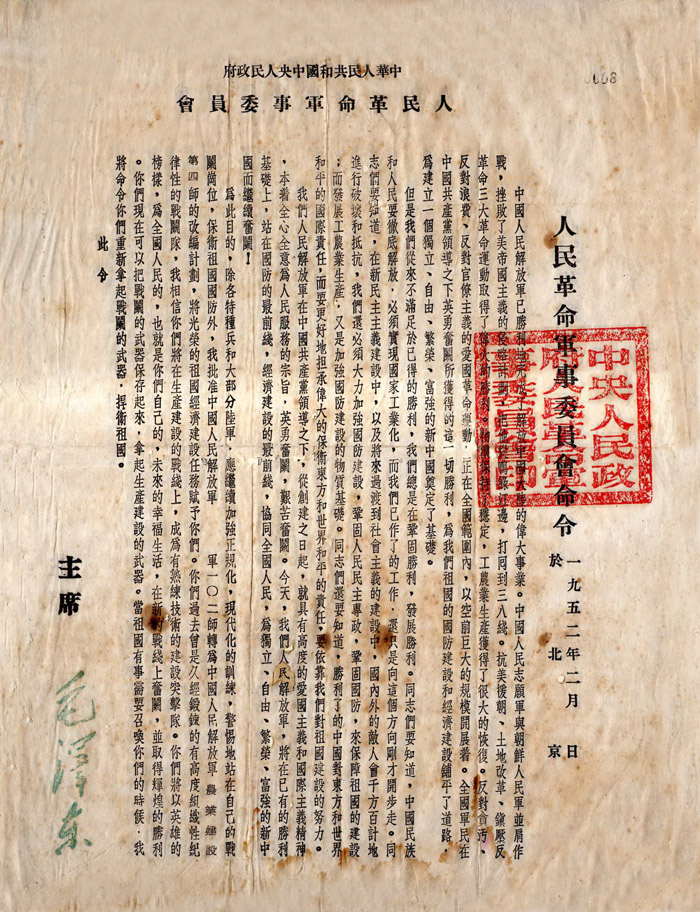 中華人民共和國中央人民政府
人民革命軍事委員會
人民革命軍事委員會命令
一九五二年二月 日
於 北 京
中央人民政
府人民革命
中國人民解放軍已勝利地完成了解放中國大陸的偉大事業。中國人民志願軍與朝鮮人民軍並肩作
戰，挫敗了美帝國主義的侵略計劃，把他從鴨綠江邊，打囘到三八綫。抗美援朝、土地改革、鎭壓反
革命三大革命運動取得了偉大的勝利。物價保持了穩定，工農業生產獲得了很大的恢復。反對貪汚、
反對浪費、反對官僚主義的愛國革命運動，正在全國範圍內，以空前巨大的規模開展着。全國軍民在
中國共產黨領導之下英勇奮鬭所獲得的這一切勝利，爲我們祖國的國防建設和經濟建設鋪平了道路，
爲建立一個獨立、自由、繁榮、富強的新中國奠定了基礎。
但是我們從來不滿足於已得的勝利，我們總是在鞏固勝利，發展勝利。同志們要知道，中國民族
和人民要徹底解放，必須實現國家工業化，而我們已作了的工作，還只是向這個方向剛才開步走。同
志們要知道，在新民主主義建設中，以及將來過渡到社會主義的建設中，國內外的敵人會千方百計地
進行破壞和抵抗，我們還必須大力加強國防建設，鞏固人民民主專政，鞏固國防，來保障祖國的建設
；而發展工農業生產，又是加強國防建設的物質基礎。同志們還要知道，勝利了的中國對東方和世界
和平的國際責任，而要更好地担承偉大的保衛東方和世界和平的責任，要依靠我們對祖國建設的努力。
我們人民解放軍在中國共產黨領導之下，從創建之日起，就具有高度的愛國主義和國際主義精神
，本着全心全意爲人民服務的宗旨，英勇奮鬭，艱苦奮鬭。今天，我們人民解放軍，將在已有的勝利
基礎上，站在國防的最前綫，經濟建設的最前綫，協同全國人民，爲獨立、自由、繁榮、富強的新中
國而繼續奮鬭！
爲此目的，除各特種兵和大部分陸軍，應繼續加強正規化，現代化的訓練，警惕地站在自己的戰
鬭崗位，保衛祖國國防外，我批准中國人民解放軍 軍一〇二師轉爲中國人民解放軍 農業建設
第四師的改編計劃，將光榮的祖國經濟建設任務賦予你們。你們過去曾是久經鍛鍊的有高度組織性紀
律性的戰鬭隊，我相信你們將在生產建設的戰綫上，成爲有熟練技術的建設突擊隊。你們將以英雄的
榜樣，爲全國人民的，也就是你們自己的，未來的幸福生活，在新的戰綫上奮鬭，並取得輝煌的勝利
。你們現在可以把戰鬭的武器保存起來，拿起生產建設的武器。當祖國有事需要召喚你們的時候，我
將命令你們重新拿起戰鬭的武器，捍衛祖國。
此 令
主席
毛澤东